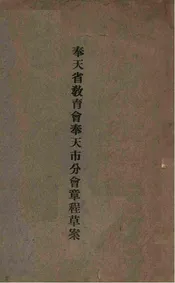 奉天省教育會奉天市分會章程草案